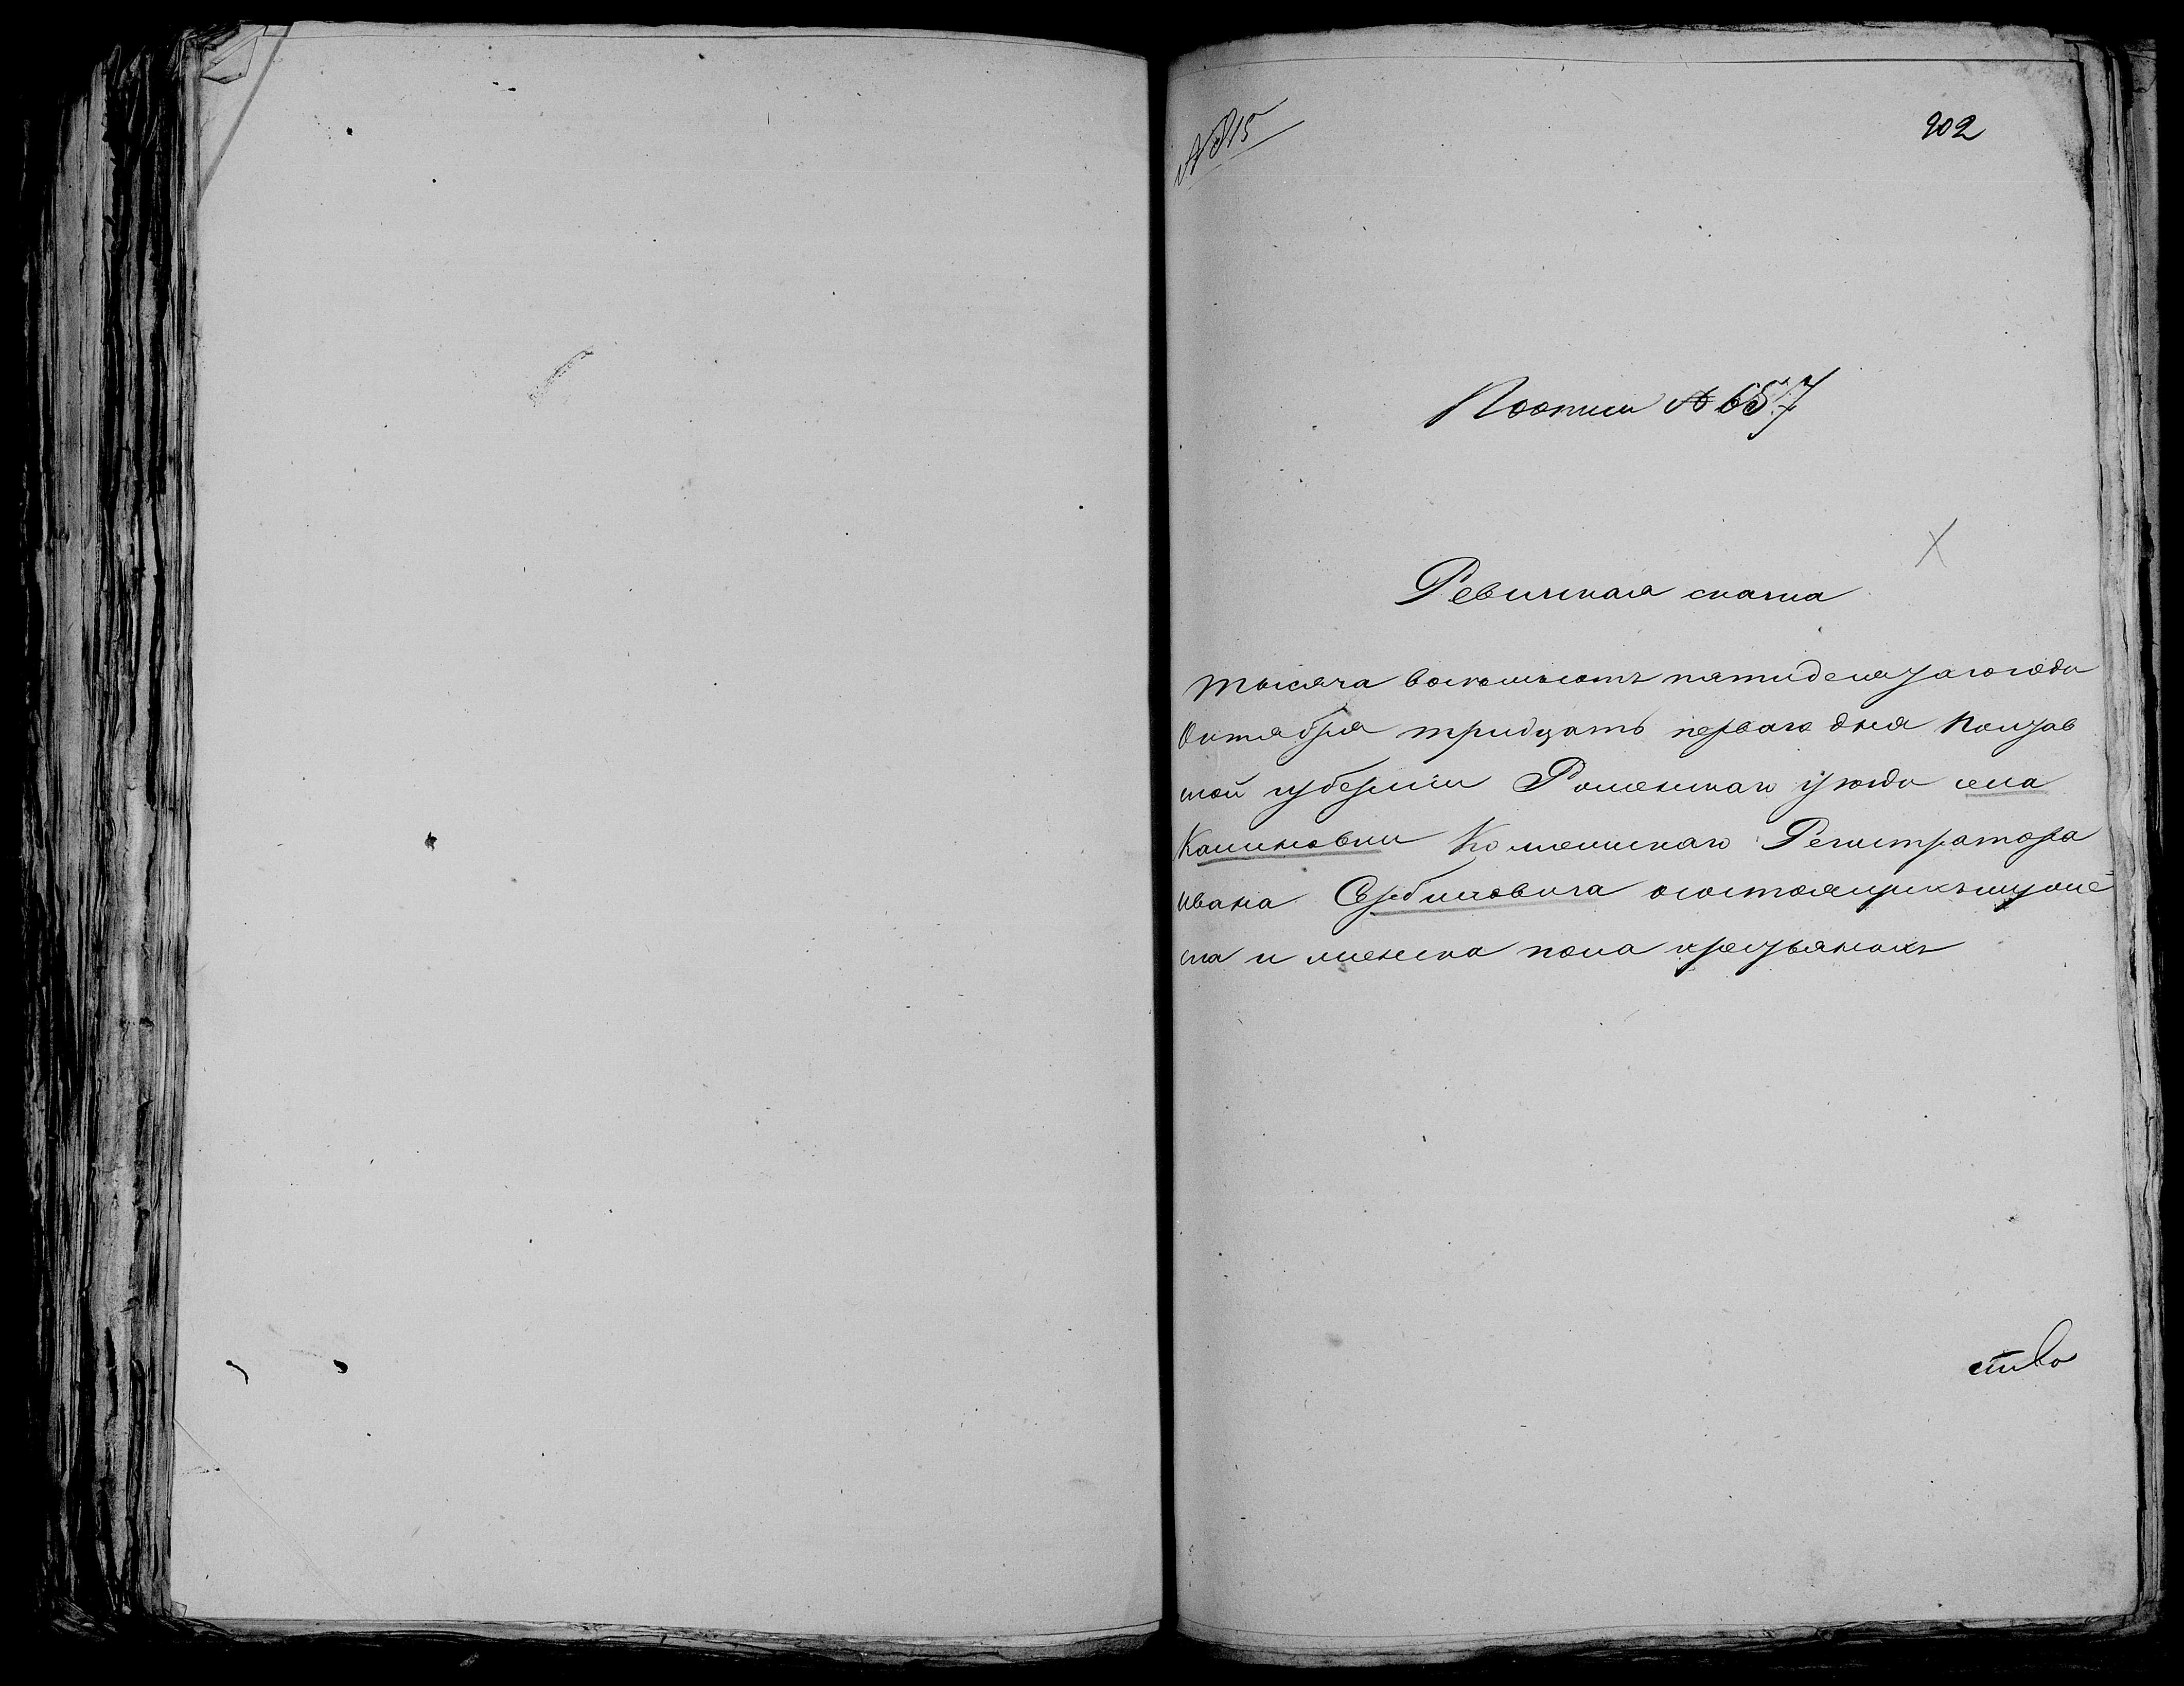 № 815
902
По описи № 657
Ревизская сказка
тысяча восемьсотъ пятидесятаго года
Октября тридцать перваго дня Полтав
ской губерніи Роменскаго уѣзда села
Калиновки Колежскаго Регистратора
Ивана Сербиновича о состоящихъ мужè
ска и женска пола крестьянахъ